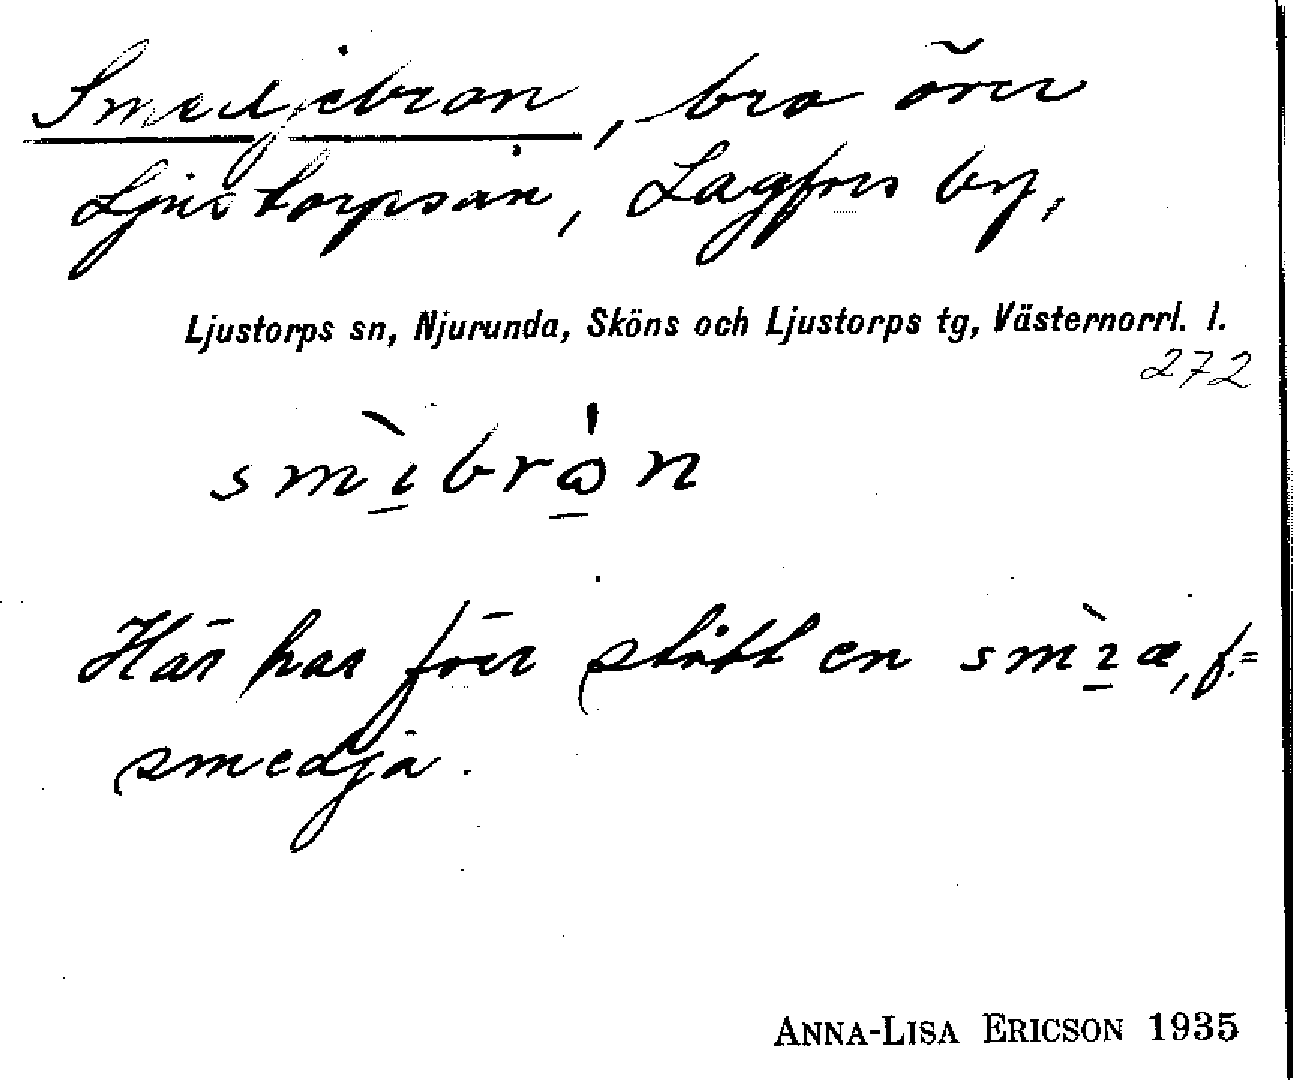 Smedjebron, bro över
Ljustorpsån, Lagfors by,
Ljustorps sn, Njurunda, Sköns och Ljustorps tg, Västernorrl. l.
272
smı̱̀brω̱̍n
Här har förr stått en smı̱̀æ, f. =
smedja.
ANNA-LISA ERICSON 1935